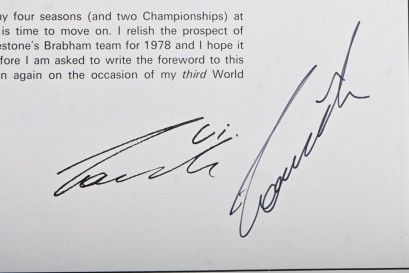 ny four seasons (and two Championships) at
is time to move on. I relish the prospect of
estone's Brabham team for 1978 and I hope it
fore I am asked to write the foreword to this
n again on the occasion of my third World